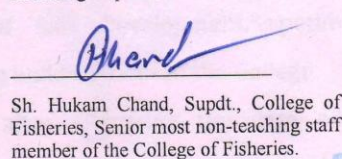 Chand
Sh. Hukam Chand, Supdt., College of
Fisheries, Senior most non-teaching staff
member of the College of Fisheries.